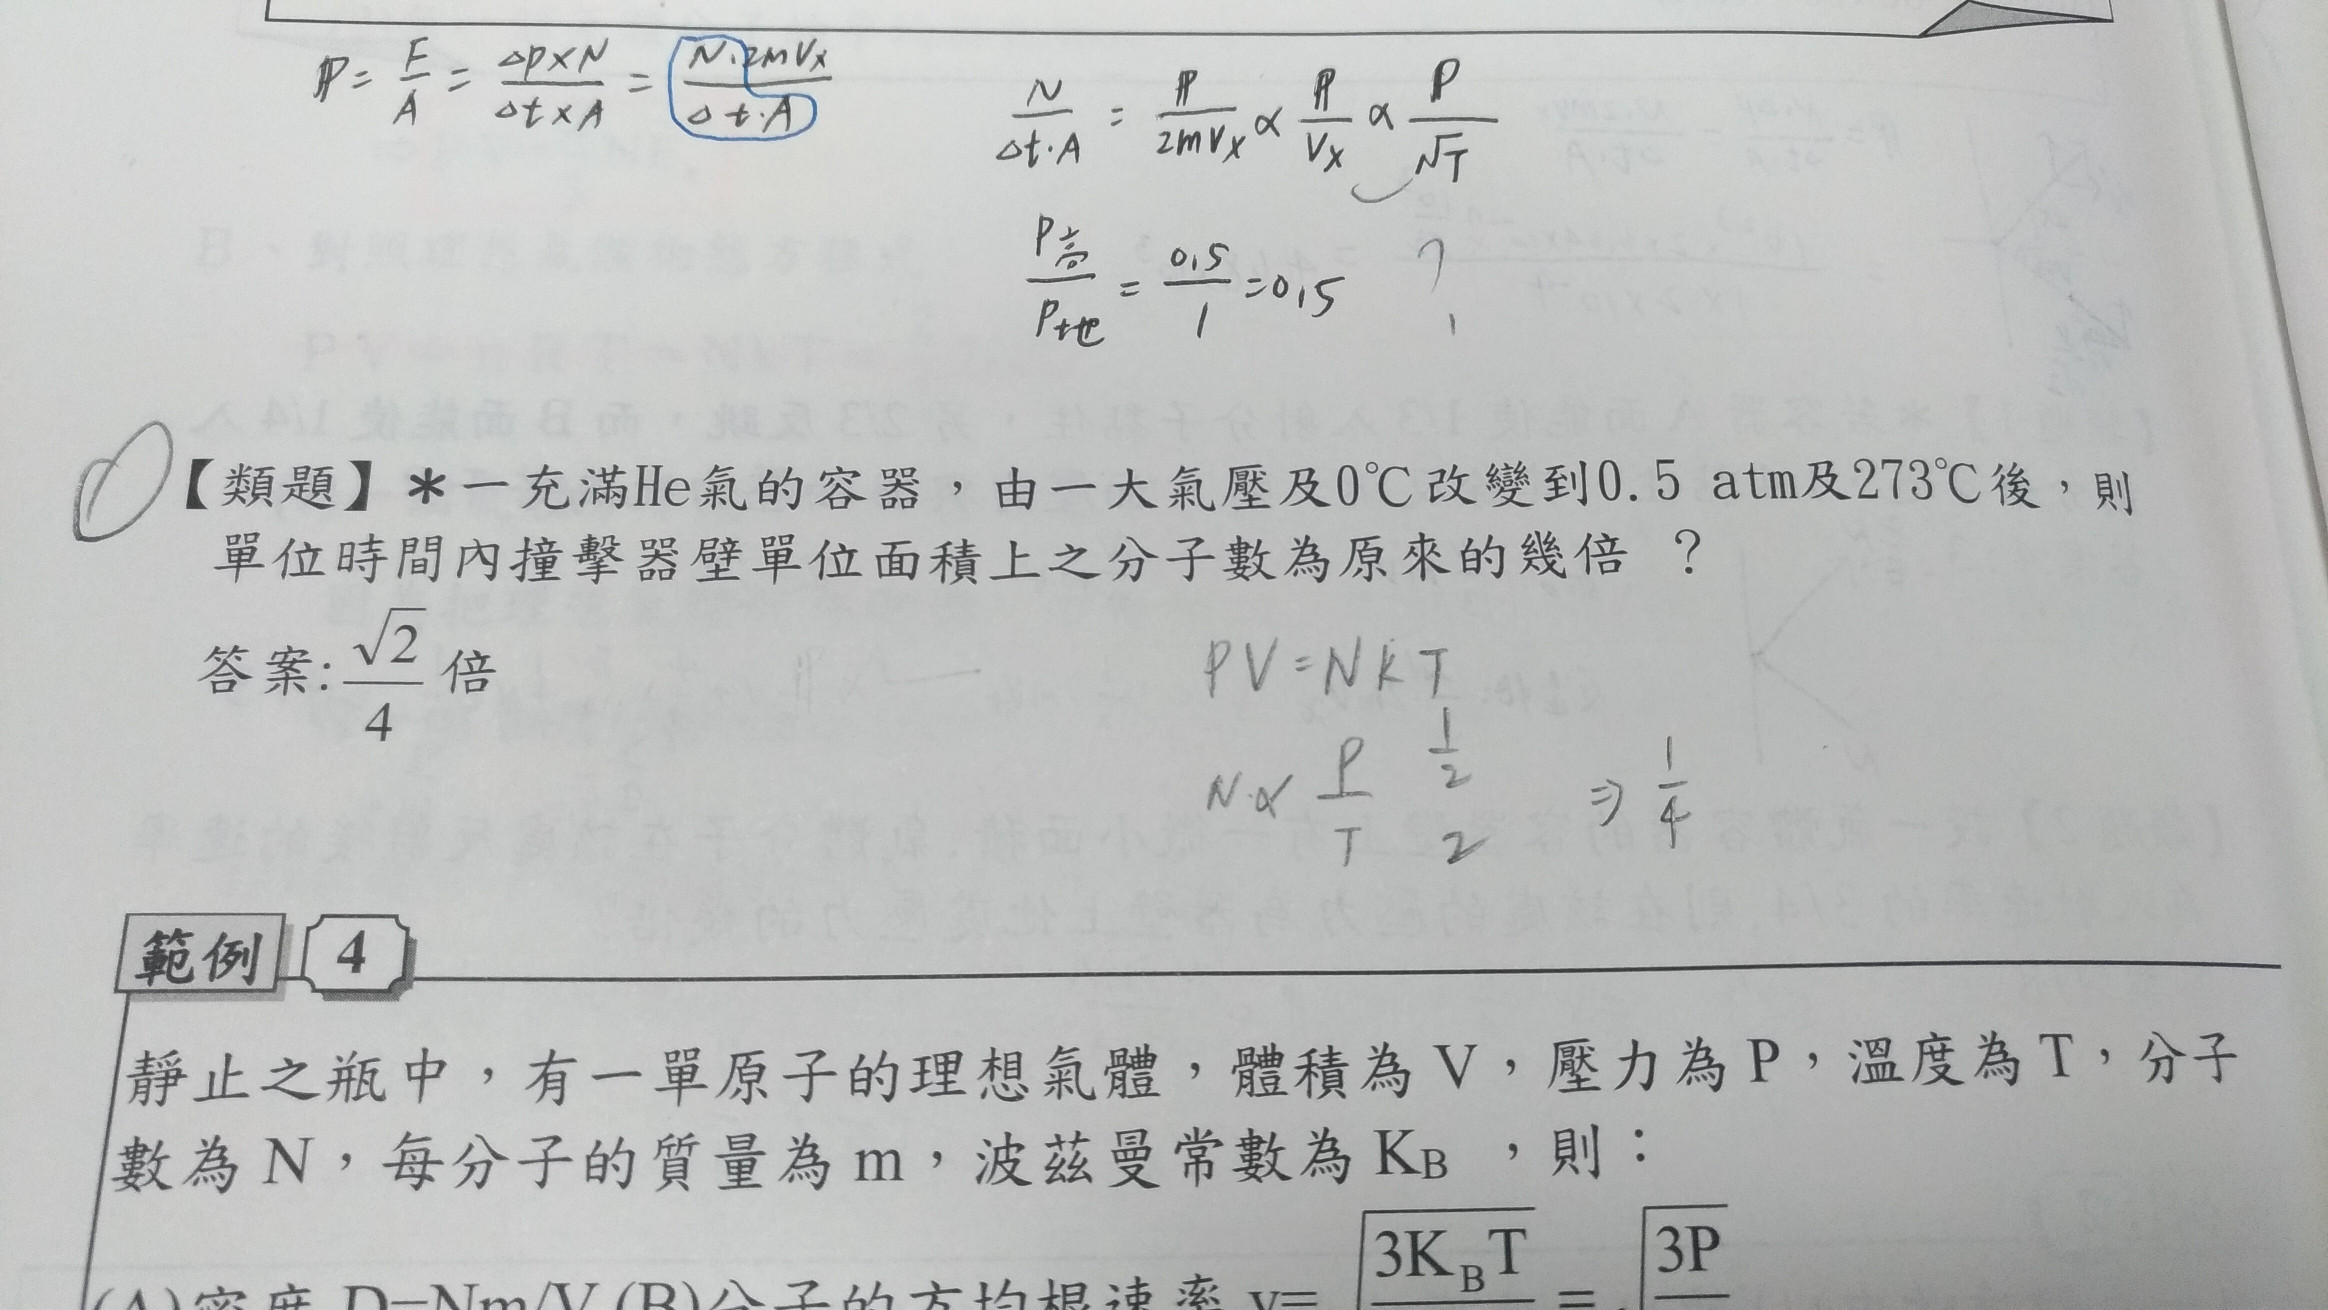 P = F/A = Δp×N/Δt×A = N·2mVx/Δt·A
N/Δt·A = P/2mVx ∝ P/Vx ∝ P/√T
P高/P地 = 0.5/1 = 0.5 ?
【類題】*一充滿He氣的容器，由一大氣壓及0℃改變到0.5 atm及273℃後，則
單位時間內撞擊器壁單位面積上之分子數為原來的幾倍 ？
答案: √2/4 倍
PV=NKT
N∝ P/T 1/2 / 2 ⇒ 1/4
範例 4
靜止之瓶中，有一單原子的理想氣體，體積為 V，壓力為 P，溫度為 T，分子
數為 N，每分子的質量為 m，波茲曼常數為 KB ，則：
(A)密度 D=Nm/V (B)分子的方均根速率 v= √3KBT = √3P